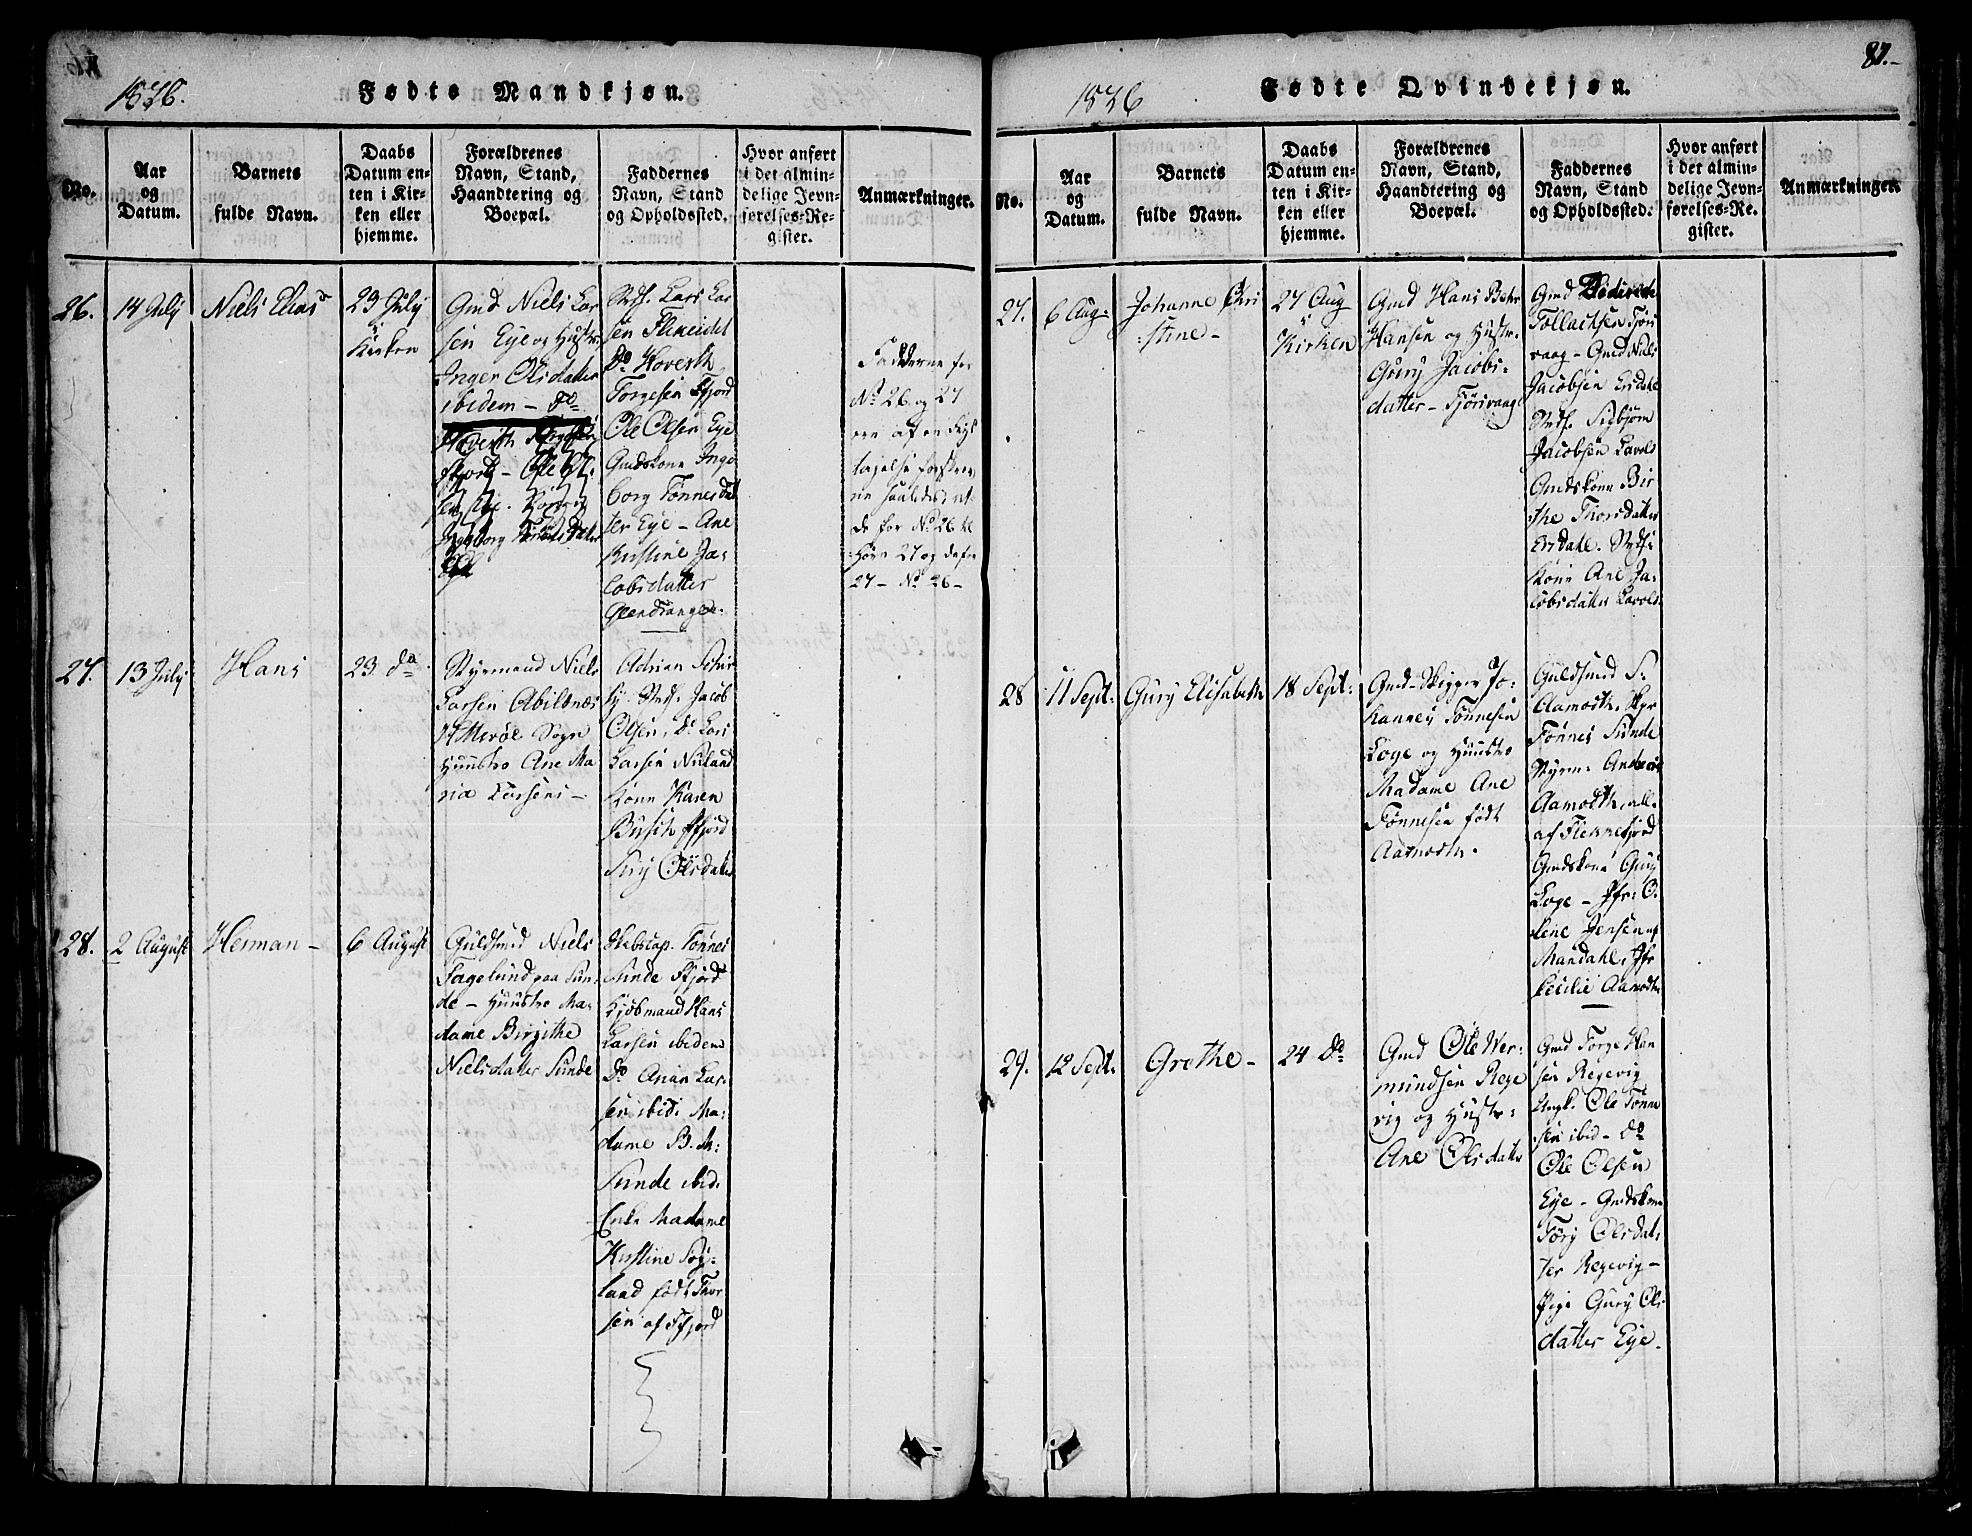 1826.
Fødte Mandkjøn.
No.
Aar
og
Datum.
Barnets
fulde Navn.
Daabs
Datum en-
ten i Kir-
ken eller
hjemme.
Forældrenes
Navn, Stand,
Haandtering og
Boepæl.
Faddernes
Navn, Stand
og Opholdssted.
Hvor anført
i det almin-
delige Jevn-
førelses-Re-
gister.
Anmærkninger.
26.
14 July
Niels Elias
23 July
Kirken
Gmd Niels Lar
sen Eye og Hustr:
Inger Olsdatter
ibidem - Do
Strf. Lars Lar
sen
Do Hoverth
Torgesen Ffjord
Ole Olsen Eye
Gmdskone Inge
borg Tønnesdat
ter Eye - Ane
Kirstine Ja-
cobsdatter
Fadderne for
No 26 og 27
ere af en
tagelse
saaledes at
de for No 26 til
hører 27 og de for
27 - No 26 -
27.
13 July
Hans
23 do
Styrmand Niels
Larsen Abilsnæs
Hitterøe Sogn
Huustro Ane Ma
ria Larsens -
Adrian
Strf. Jacob
Olsen, Do Lars
Larsen Nuland
Kone Karen
Busch Ffjord
Siry Olsdatter
28.
2 August
Herman -
6 August
Guldsmed Niels
Fagelund paa Sun
de - Huustro Ma
dame Birgithe
Nielsdatter Sunde
Skibscap. Tønnes
Sunde Ffjord
Kjøbmand Hans
Larsen ibidem
Do Anan Lar-
sen ibid. Ma-
dame B. M:
Sunde ibid.
Enke Madame
Kirstine Søy-
land født Thor
sen af Ffjord
1826
Fødte Qvindekjøn.
87.-
No.
Aar
og
Datum.
Barnets
fulde Navn.
Daabs
Datum en-
ten i Kir-
ken eller
hjemme.
Forældrenes
Navn, Stand,
Haandtering og
Boepæl.
Faddernes
Navn, Stand
og Opholdssted.
Hvor anført
i det almin-
delige Jevn-
førelses-Re-
gister.
Anmærkninger.
27.
6 Aug.
Johanne Chri
stine -
27 Aug
Kirken
Gmd Hans Behr
Hansen og Hustr.
Gury Jacobs-
datter - Tjørsvaag
Gmd Diderich
Tollacksen Tjørs
vaag - Gmd Niels
Jacobsen Ersdahl
Strf. Sigbjørn
Jacobsen Lavold
Gmdskone Bir
the Thorsdatter
Ersdahl. Strfs
kone Ane Ja-
cobsdatter Lavold
28
11 Sept:
Gury Elisabeth
18 Sept:
Gmd-Skipper Jo-
hannes Tønnesen
Loge og Huustro
Madame Ane
Tønnesen født
Aamodt.
Guldsmed S.
Aamodth. Skpr
Tønnes Sunde
Styrm: Andreas
Aamodth, all.
af Flekkefjord
Gmdskone Gury
Loge - Jfr: O.
lene Jensen af
Mandahl, Jfr
Cecilie Aamodth
29.
12 Sept.
Grethe -
24 Do
Gmd Ole Wer-
mundsen Rege
vig og Hustr:
Ane Olsdatter
Gmd Torge Han
sen Regevig
Ungk. Ole Tønne
sen ibid - Do
Ole Olsen
Eye - Gmdskone
Tøry Olsdat-
ter Regevig -
Pige Gury Ols
datter Eye.